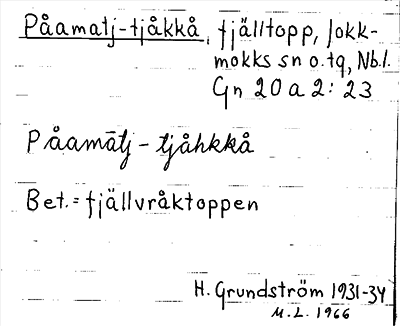 Påamatj-tjåkkå, fjälltopp, Jokk-
mokks sn o. tg, Nb.l.
Gn 20 a 2: 23
Påamātj - tjåhkkå
Bet. = fjällvråktoppen
H. Grundström 1931-34
M. L. 1966